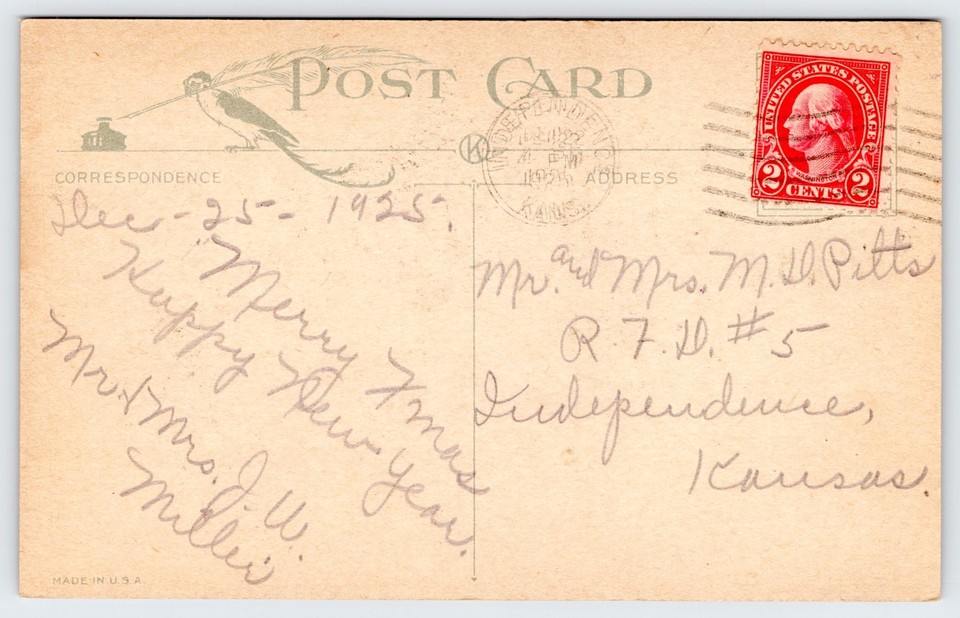 POST CARD
K
INDEPENDENCE
KANS.
UNITED STATES POSTAGE
WASHINGTON
2 CENTS 2
CORRESPONDENCE
ADDRESS
Dec - 25 - 1925.
Merry Xmas
Happy New Year.
Mr. & Mrs. J. W.
Miller
Mr. and Mrs. M. D. Pitts
R. F. D. #5
Independence,
Kansas.
MADE IN U.S.A.